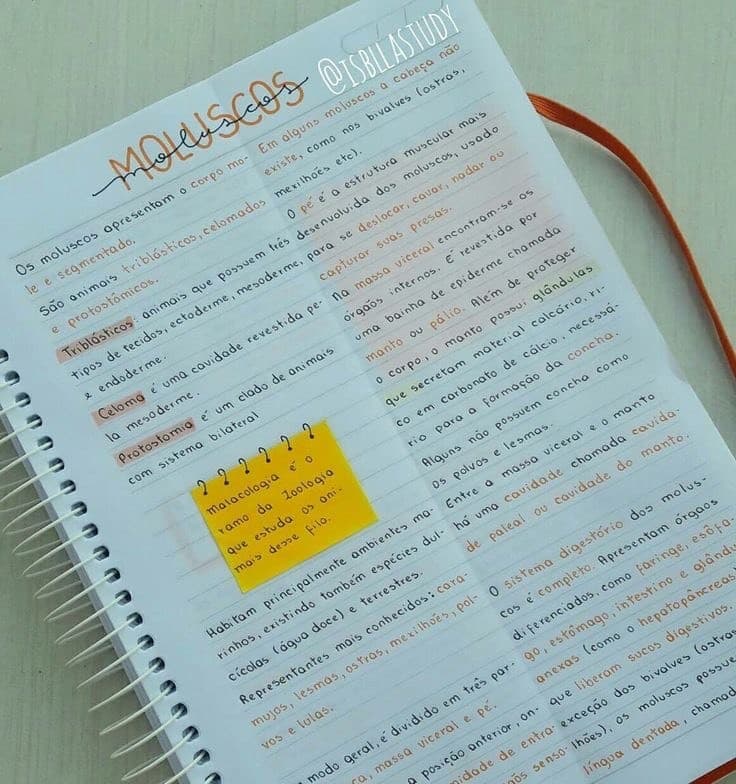 MOLUSCOS
moluscos
@ISBLLASTUDY
Os moluscos apresentam o corpo mo-
le e segmentado.
São animais triblásticos, celomados
e protostômicos.
Triblásticos: animais que possuem três
tipos de tecidos, ectoderme, mesoderme,
e endoderme.
Celoma é uma cavidade revestida pe-
la mesoderme.
Protostomia é um clado de animais
com sistema bilateral
malacologia é o
ramo da Zoologia
que estuda os ani-
mais desse filo.
Habitam principalmente ambientes ma-
rinhos, existindo também espécies dul-
cícolas (água doce) e terrestres.
Representantes mais conhecidos: cara-
mujos, lesmas, ostras, mexilhões, pol-
vos e lulas.
modo geral, é dividido em três par-
ça, massa viceral e pé.
a posição anterior, on-
midade de entra-
gãos senso-
Em alguns moluscos a cabeça não
existe, como nos bivalves (ostras,
mexilhões etc).
O pé é a estrutura muscular mais
desenvolvida dos moluscos, usado
para se deslocar, cavar, nadar ou
capturar suas presas.
Na massa viceral encontram-se os
órgãos internos. É revestida por
uma bainha de epiderme chamada
manto ou pálio. Além de proteger
o corpo, o manto possui glândulas
que secretam material calcário, ri-
co em carbonato de cálcio, necessá-
rio para a formação da concha.
Alguns não possuem concha como
os polvos e lesmas.
Entre a massa viceral e o manto
há uma cavidade chamada cavida-
de paleal ou cavidade do manto.
O sistema digestório dos molus-
cos é completo. Apresentam órgãos
diferenciados, como faringe, esôfa-
go, estômago, intestino e glându
anexas (como o hepatopâncreas)
que liberam sucos digestivos.
exceção dos bivalves (ostras
lhões), os moluscos possue
língua dentada, chamad